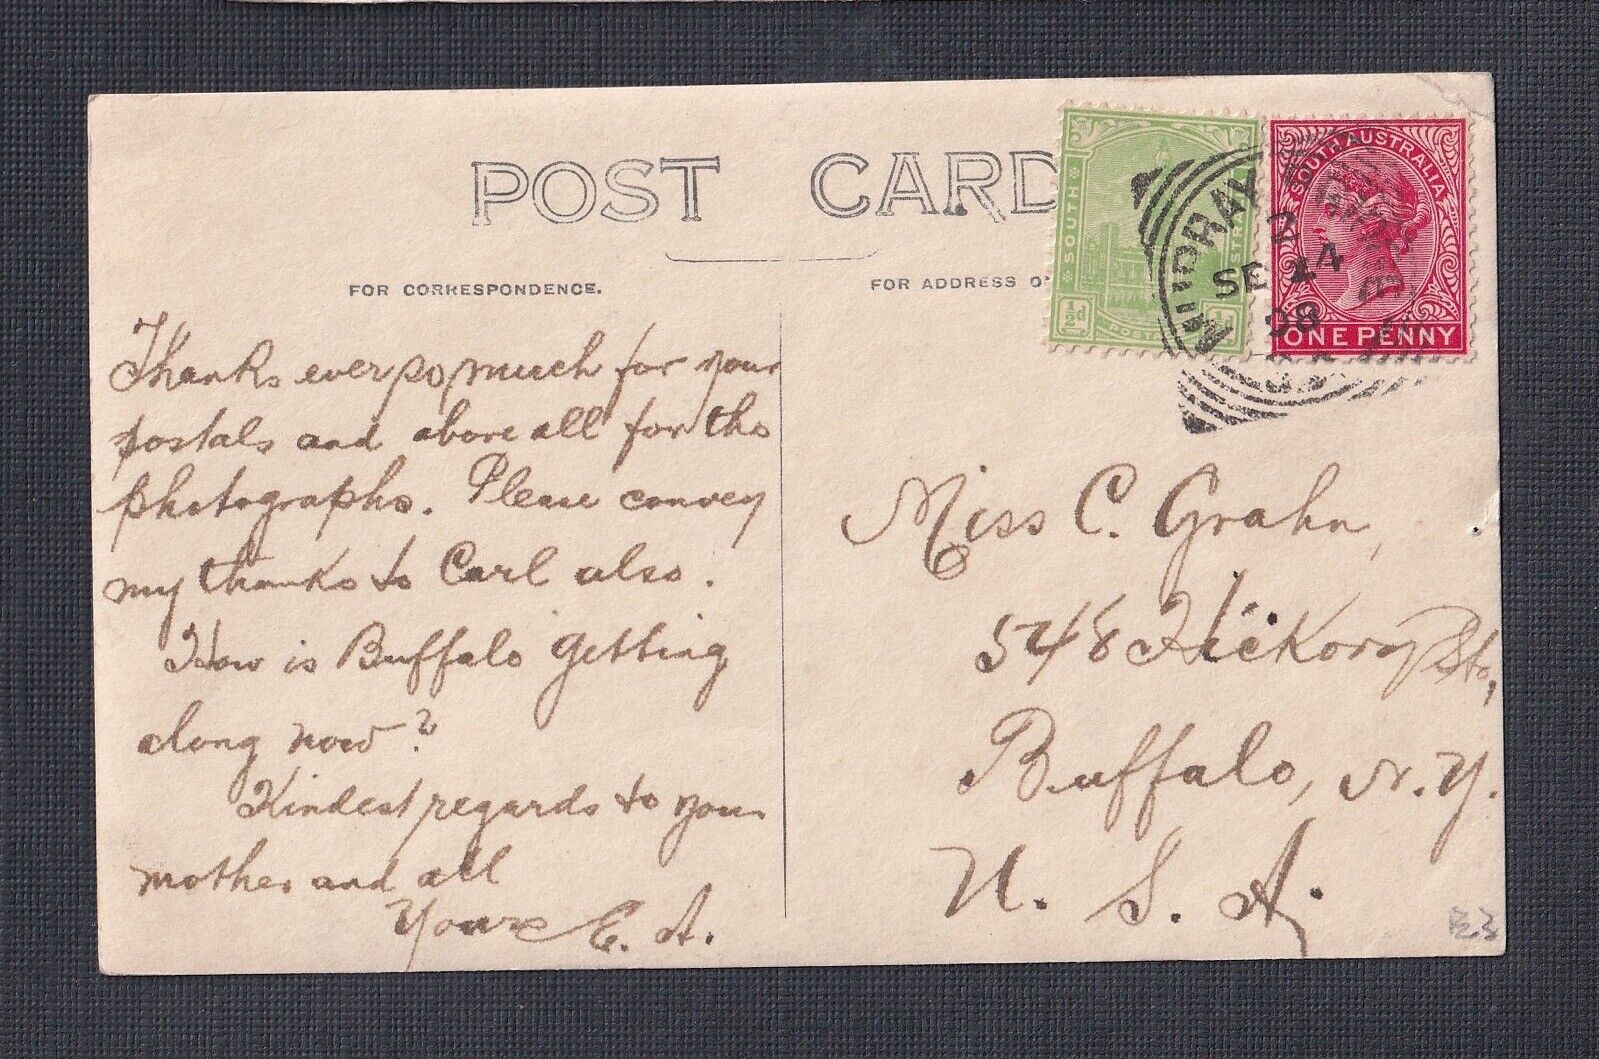 POST CARD
FOR CORRESPONDENCE.
FOR ADDRESS O
Thanks ever so much for your
postals and above all for the
photographs. Please convey
my thanks to Carl also.
How is Buffalo getting
along now?
Kindest regards to your
mother and all
Yours E. A.
SOUTH
½d
POST
SOUTH AUSTRALIA
ONE PENNY
MURRAY
2
SE 24
08
Miss C. Grahn,
548 Hickory St.,
Buffalo, N.Y.
U. S. A.